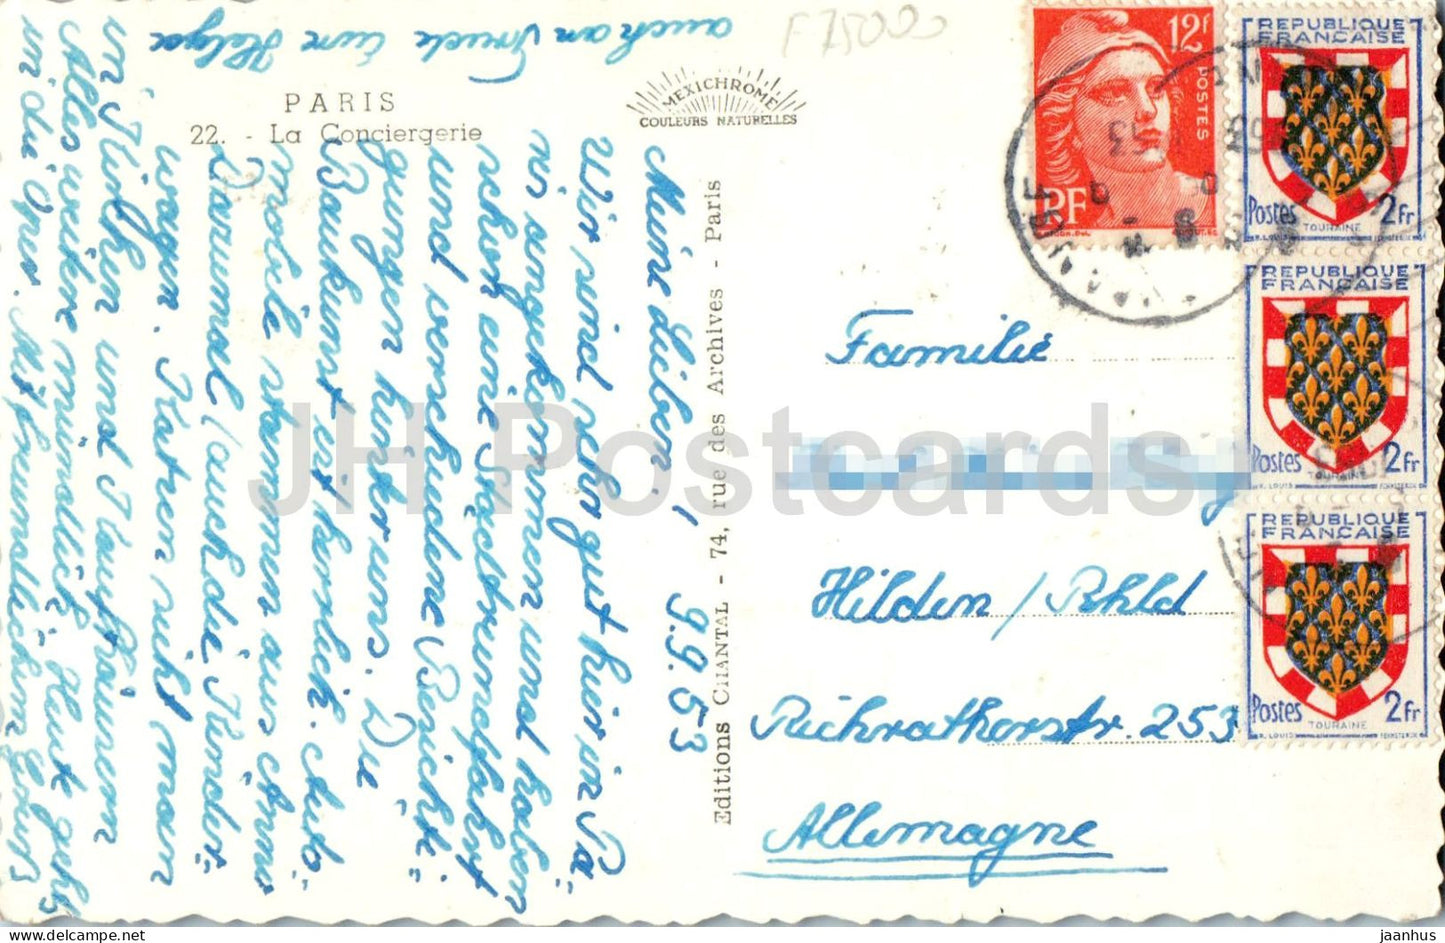 PARIS
22. - La Conciergerie
MEXICHROME
COULEURS NATURELLES
Editions CHANTAL - 74, rue des Archives - Paris
Meine Lieben, 9.9.53
Wir sind sehr gut hier in Pa-
ris angekommen und haben
schon eine Stadtrundfahrt
und verschiedene Besichti-
gungen hinter uns. Die
Baukunst ist herrlich. Auto-
modelle stammen aus
Damensel (auch die Kinder-
wagen.
in Kirchen und Träumen
Alles weitere mündlich. Heut gehts
in die Oper. Mit heimatlichem Gruß
auch an Trude Eure Helga
F75000
12f
POSTES
RF
REPUBLIQUE
FRANÇAISE
Postes 2Fr
TOURAINE
REPUBLIQUE
FRANÇAISE
Postes 2Fr
TOURAINE
REPUBLIQUE
FRANÇAISE
Postes 2Fr
TOURAINE
Familie
Hilden / Rhld
Richratherstr. 253
Allemagne
JH Postcards
jaanhus.com